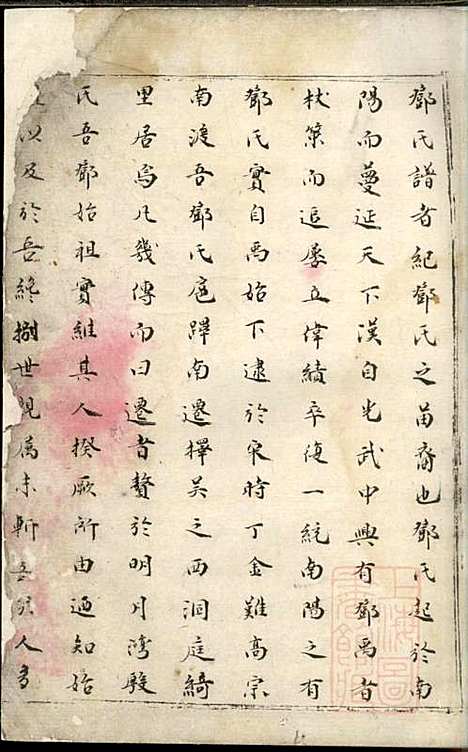 鄧氏譜者紀鄧氏之苗裔也鄧氏起於南
陽而蔓延天下漢自光武中興有鄧禹者
杖策而追屢立偉績卒復一統南陽之有
鄧氏實自禹始下逮於宋時丁金難高宗
南渡吾鄧氏扈蹕南遷擇吳之西洞庭綺
里居焉凡幾傳而曰遷者贅於明月灣殷
氏吾鄧始祖實維其人揆厥所由迺知始
以及於吾終捌世親屬未